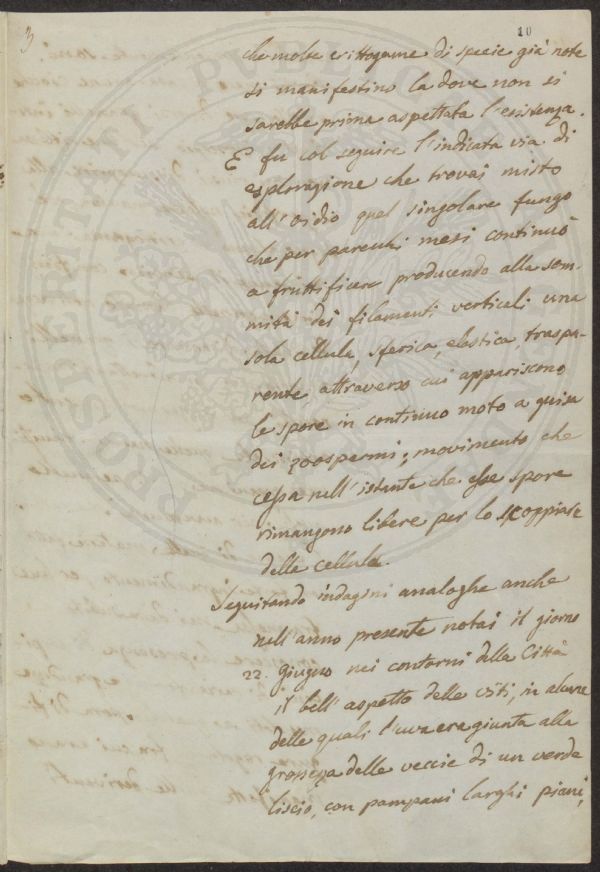 3
10
che molte crittogame di specie già note
si manifestino la dove non si
sarebbe prima aspettata l'esistenza.
E fu col seguire l'indicata via di
esplorazione che trovai misto
all'Oidio quel singolare fungo
che per parecchi mesi continuò
a fruttificare producendo alla som-
mità dei filamenti verticali una
sola cellula, sferica, elastica, traspa-
rente attraverso cui appariscono
le spore in continuo moto a guisa
dei zoospermi; movimento che
cessa nell'istante che esse spore
rimangono libere per lo scoppiare
delle cellule.
Seguitando indagini analoghe anche
nell'anno presente notai il giorno
22. giugno nei contorni della Città
il bell'aspetto delle viti, in alcune
delle quali l'uva era giunta alla
grossezza delle veccie di un verde
liscio, con pampani larghi piani,
PROSPERITATI PUBLICAE